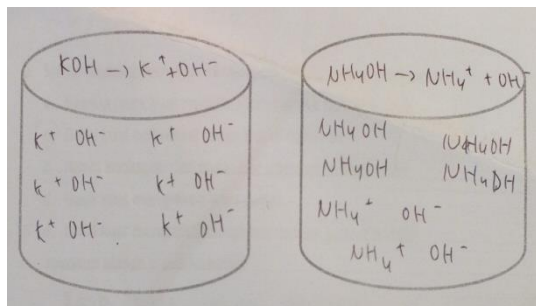 KOH → K⁺ + OH⁻
K⁺ OH⁻ K⁺ OH⁻
K⁺ OH⁻ K⁺ OH⁻
K⁺ OH⁻ K⁺ OH⁻
NH4OH → NH4⁺ + OH⁻
NH4OH NH4OH
NH4OH NH4OH
NH4⁺ OH⁻
NH4⁺ OH⁻